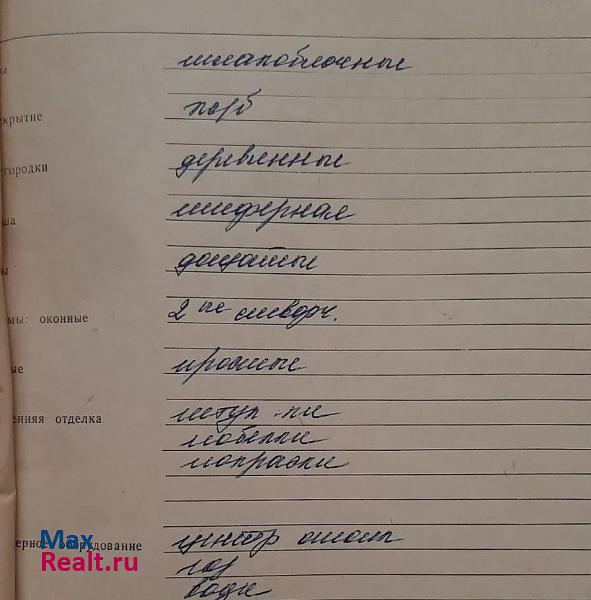 ы шлакоблочные
крытие ж/б
городки деревянные
ша шиферная
ы дощатые
мы: оконные 2 не створч.
ые простые
енняя отделка штук-ка
побелка
покраска
ерное оборудование центр отопл
газ
вода
Max
Realt.ru